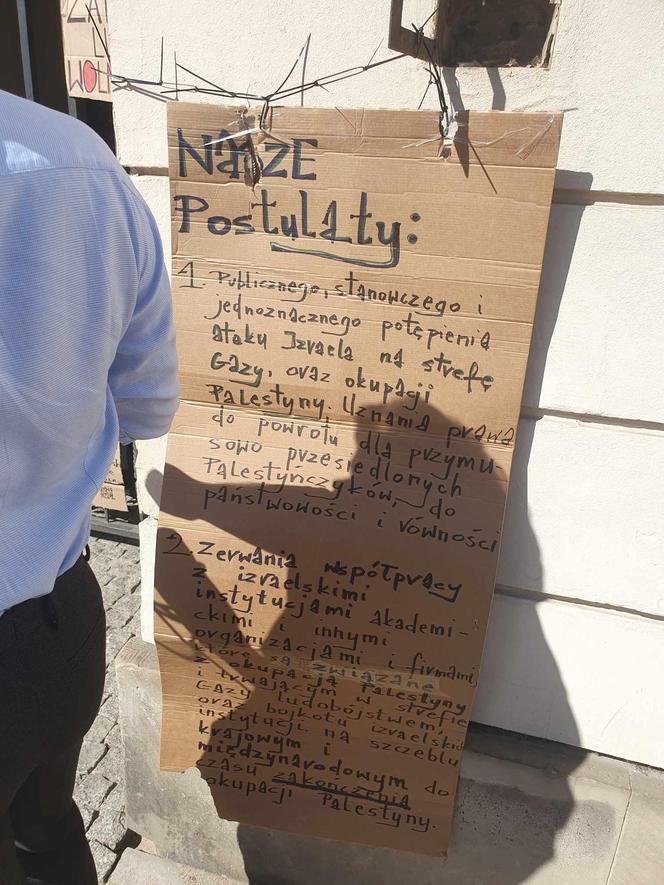 ZA
WOL
NASZE
Postulaty:
1. Publicznego, stanowczego i
jednoznacznego potępienia
ataku Izraela na strefę
Gazy, oraz okupacji
Palestyny. Uznania prawa
do powrotu dla przymu-
sowo przesiedlonych
Palestyńczyków, do
państwowości i równości
2. Zerwania współpracy
z izraelskimi
instytucjami akademi-
ckimi i innymi
organizacjami i firmami,
które są związane
z okupacją Palestyny
i trwającym w strefie
Gazy ludobójstwem,
oraz bojkotu izraelskich
instytucji na szczeblu
krajowym i
międzynarodowym do
czasu zakończenia
okupacji Palestyny.